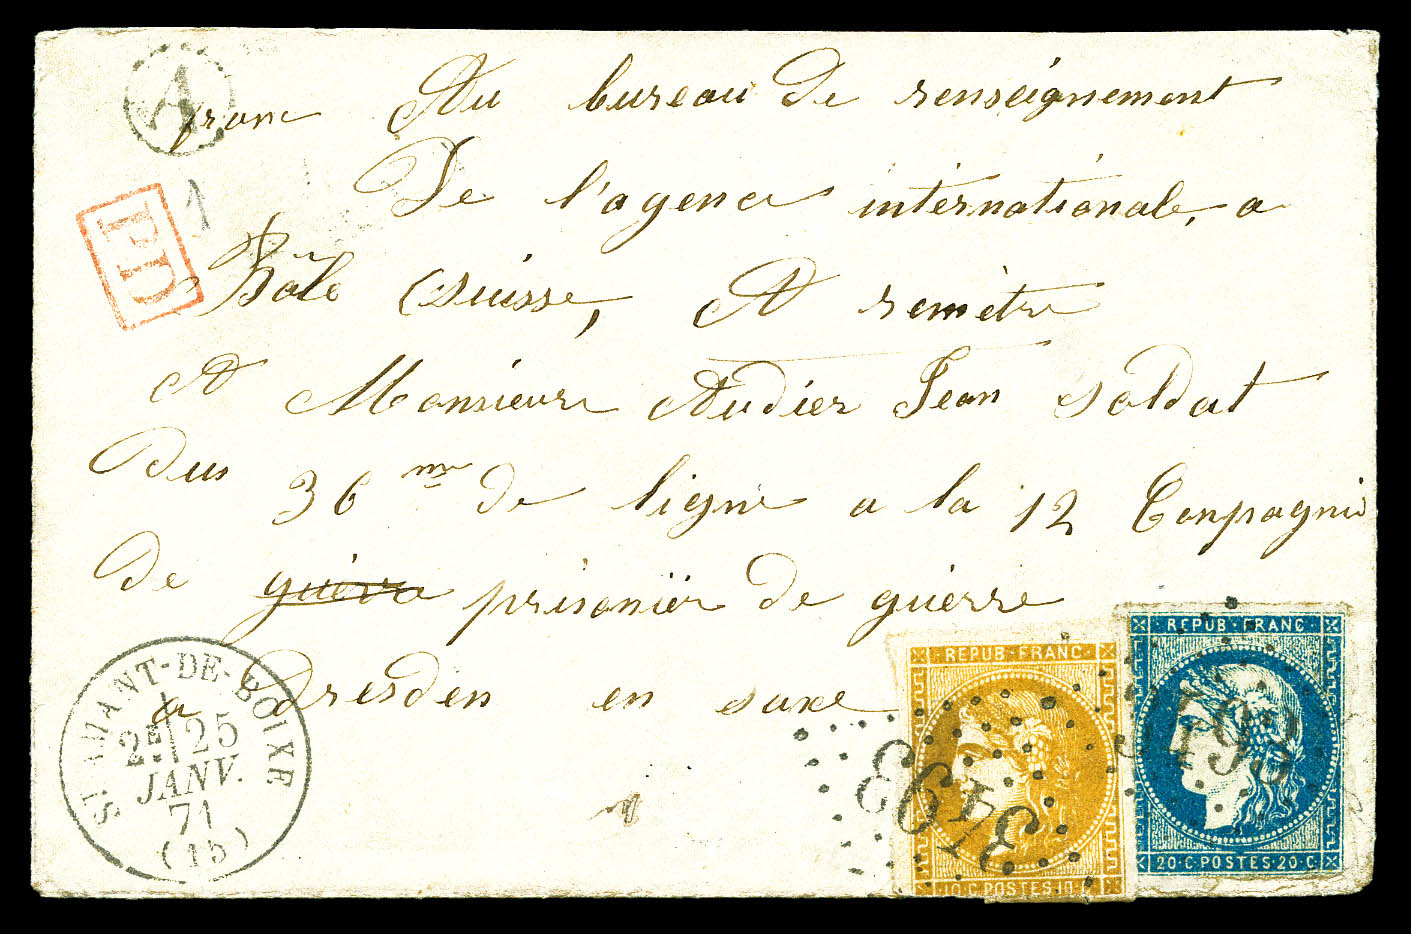 A
franc Au bureau de renseignement
De l'agence internationale, a
1
PD
Bâle (Suisse, A remètre
A Monsieur Audier Jean soldat
Dus 36me de ligne a la 12 Conpagnie
De guerre prisonièr de guèrre
a Dresden en saxe
ST AMANT-DE-BOIXE
2E 25
JANV.
71
(15)
REPUB·FRANC·
3493
10·C·POSTES·10·C
REPUB·FRANC·
3493
20·C·POSTES·20·C